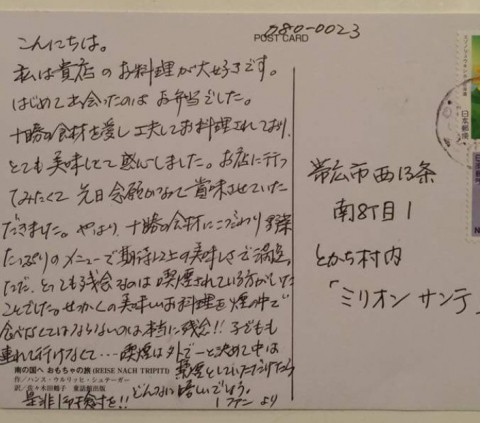 080-0023
POST CARD
こんにちは。
私は貴店のお料理が大好きです。
はじめて出会ったのはお弁当でした。
十勝の食材を愛し工夫してお料理されており、
とても美味しくて感心しました。お店に行っ
てみたくて先日念願かなって賞味させていた
だきました。やはり、十勝の食材にこだわり野菜
たっぷりのメニューで期待以上の美味しさで満足。
ただ、とっても残念なのは喫煙されている方がいた
ことでした。せっかくの美味しいお料理を煙の中で
食べなくてはならないのは本当に残念!!子ども
連れて行けなくて…喫煙は外でーと決めて中は
禁煙としていただけたら
どんなに嬉しいでしょう。
是非ご検討を!!
1ファン より
南の国へ おもちゃの旅(REISE NACH TRIPITI)
作/ハンス・ウルリッヒ・シュテーガー
訳/佐々木田鶴子 童話館出版
帯広市西13条
南8丁目1
とかち村内
「ミリオン サンテ
日本郵便